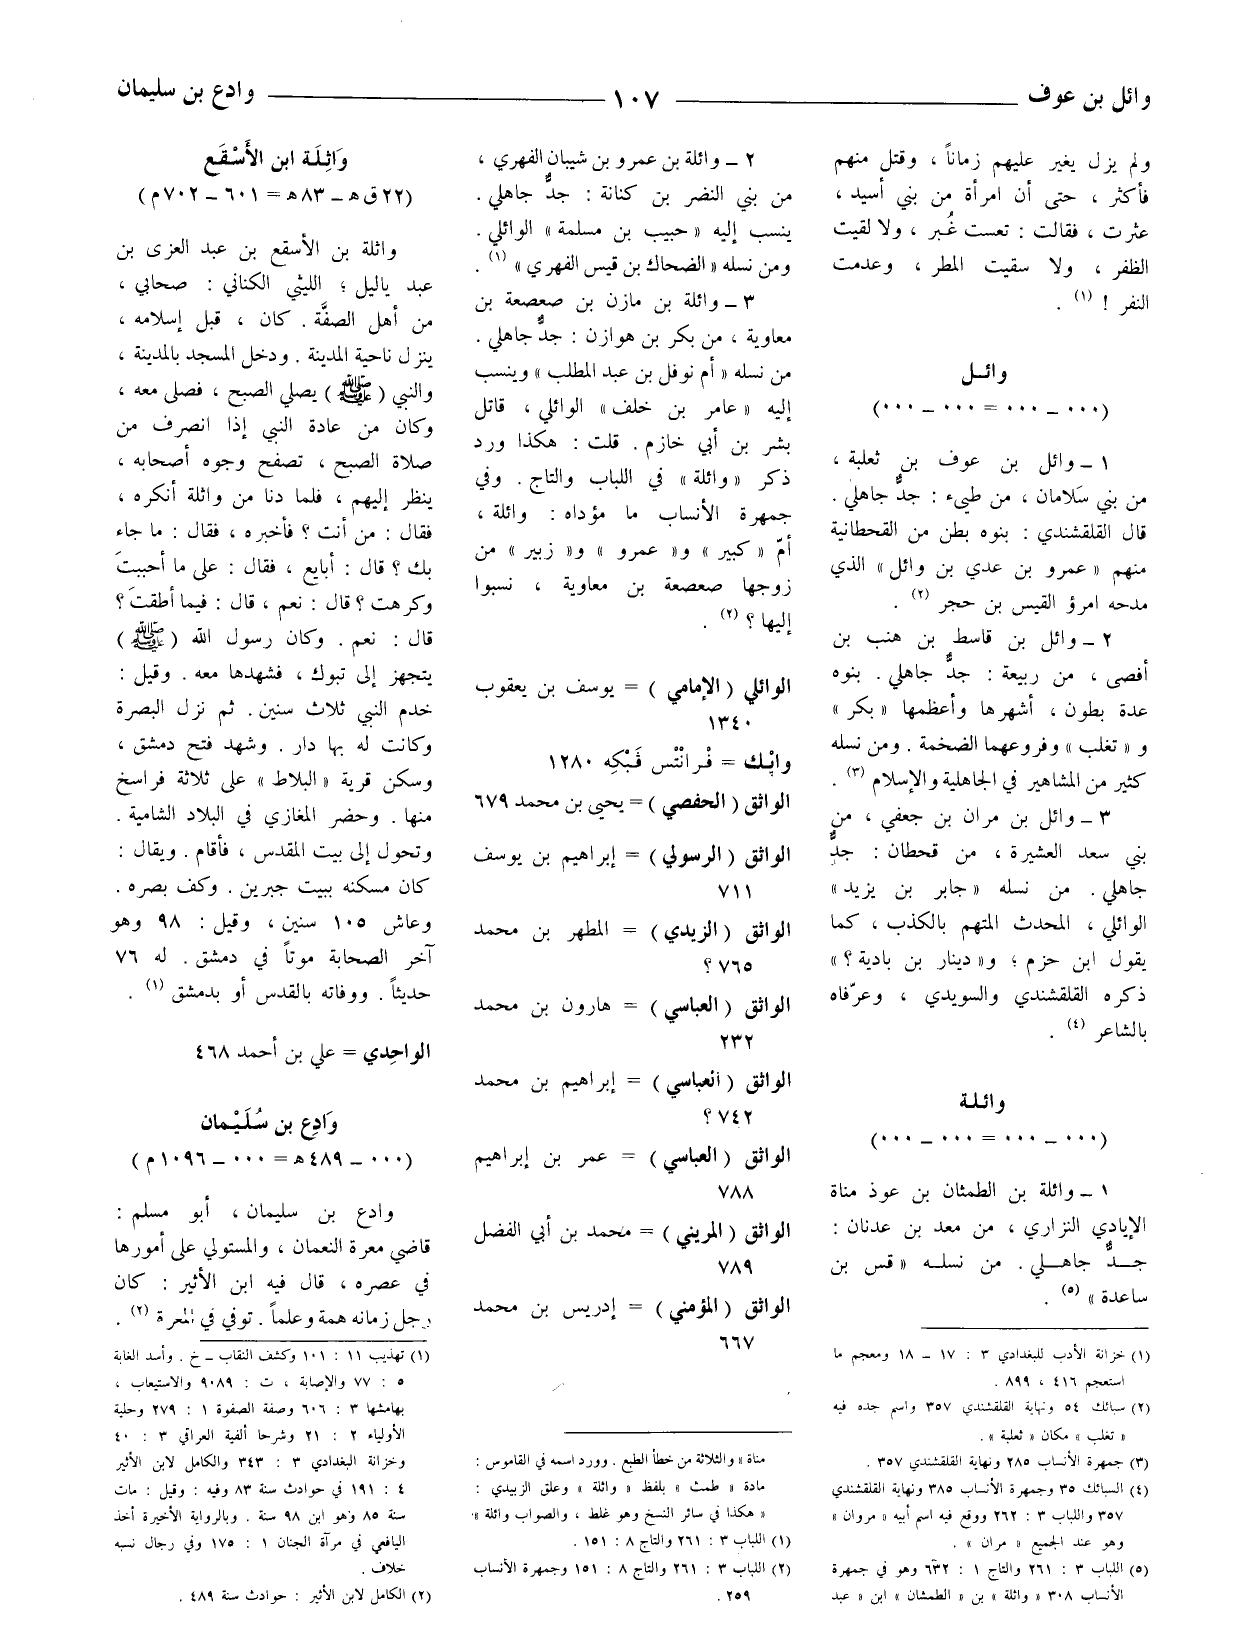 وائل بن عوف
١٠٧
وادع بن سليمان
ولم يزل يغير عليهم زماناً ، وقتل منهم
فأكثر ، حتى أن امرأة من بني أسيد ،
عثرت ، فقالت : تعست غُبر ، ولا لقيت
الظفر ، ولا سقيت المطر ، وعدمت
النفر ! (١) .
وائـل
(٠٠٠ ــ ٠٠٠ = ٠٠٠ ــ ٠٠٠)
١ ــ وائل بن عوف بن ثعلبة ،
من بني سَلامان ، من طيىء : جدٌّ جاهلي .
قال القلقشندي : بنوه بطن من القحطانية
منهم « عمرو بن عدي بن وائل » الذي
مدحه امرؤ القيس بن حجر (٢) .
٢ ــ وائل بن قاسط بن هنب بن
أفصى ، من ربيعة : جدٌّ جاهلي . بنوه
عدة بطون ، أشهرها وأعظمها « بكر »
و « تغلب » وفروعهما الضخمة . ومن نسله
كثير من المشاهير في الجاهلية والإسلام (٣) .
٣ ــ وائل بن مران بن جعفي ، من
بني سعد العشيرة ، من قحطان : جدٌّ
جاهلي . من نسله « جابر بن يزيد »
الوائلي ، المحدث المتهم بالكذب ، كما
يقول ابن حزم ؛ و« دينار بن بادية ؟ »
ذكره القلقشندي والسويدي ، وعرّفاه
بالشاعر (٤) .
وائـلة
(٠٠٠ ــ ٠٠٠ = ٠٠٠ ــ ٠٠٠)
١ ــ وائلة بن الطمثان بن عوذ مناة
الإيادي النزاري ، من معد بن عدنان :
جــدٌّ جاهــلي . من نسلــه « قس بن
ساعدة » (٥) .
(١) خزانة الأدب للبغدادي ٣ : ١٧ ــ ١٨ ومعجم ما
استعجم ٤١٦ ، ٨٩٩ .
(٢) سبائك ٥٤ ونهاية القلقشندي ٣٥٧ واسم جده فيه
« تغلب » مكان « ثعلبة » .
(٣) جمهرة الأنساب ٢٨٥ ونهاية القلقشندي ٣٥٧ .
(٤) السبائك ٣٥ وجمهرة الأنساب ٣٨٥ ونهاية القلقشندي
٣٥٧ واللباب ٣ : ٢٦٢ ووقع فيه اسم أبيه « مروان »
وهو عند الجميع « مران » .
(٥) اللباب ٣ : ٢٦١ والتاج ١ : ٦٣٢ وهو في جمهرة
الأنساب ٣٠٨ « واثلة » بن « الطمشان » ابن « عبد
٢ ــ وائلة بن عمرو بن شيبان الفهري ،
من بني النضر بن كنانة : جدٌّ جاهلي .
ينسب إليه « حبيب بن مسلمة » الوائلي .
ومن نسله « الضحاك بن قيس الفهري » (١) .
٣ ــ وائلة بن مازن بن صعصعة بن
معاوية ، من بكر بن هوازن : جدٌّ جاهلي .
من نسله « أم نوفل بن عبد المطلب » وينسب
إليه « عامر بن خلف » الوائلي ، قاتل
بشر بن أبي خازم . قلت : هكذا ورد
ذكر « وائلة » في اللباب والتاج . وفي
جمهرة الأنساب ما مؤداه : وائلة ،
أمّ « كبير » و« عمرو » و« زبير » من
زوجها صعصعة بن معاوية ، نسبوا
إليها ؟ (٢) .
الوائلي ( الإمامي ) = يوسف بن يعقوب
١٣٤٠
وايْك = فْرانْتْس فَبْكِه ١٢٨٠
الواثق ( الحفصي ) = يحيى بن محمد ٦٧٩
الواثق ( الرسولي ) = إبراهيم بن يوسف
٧١١
الواثق ( الزيدي ) = المطهر بن محمد
٧٦٥ ؟
الواثق ( العباسي ) = هارون بن محمد
٢٣٢
الواثق ( العباسي ) = إبراهيم بن محمد
٧٤٢ ؟
الواثق ( العباسي ) = عمر بن إبراهيم
٧٨٨
الواثق ( المريني ) = محمد بن أبي الفضل
٧٨٩
الواثق ( المؤمني ) = إدريس بن محمد
٦٦٧
مناة » والثلاثة من خطأ الطبع . وورد اسمه في القاموس :
مادة « طمث » بلفظ « واثلة » وعلق الزبيدي :
« هكذا في سائر النسخ وهو غلط ، والصواب وائلة » .
(١) اللباب ٣ : ٢٦١ والتاج ٨ : ١٥١ .
(٢) اللباب ٣ : ٢٦١ والتاج ٨ : ١٥١ وجمهرة الأنساب
٢٥٩ .
وَاثِلَة ابن الأَسْقَع
(٢٢ ق هـ ــ ٨٣ هـ = ٦٠١ ــ ٧٠٢ م)
واثلة بن الأسقع بن عبد العزى بن
عبد ياليل ؛ الليثي الكناني : صحابي ،
من أهل الصفَّة . كان ، قبل إسلامه ،
ينزل ناحية المدينة . ودخل المسجد بالمدينة ،
والنبي (ﷺ) يصلي الصبح ، فصلى معه ،
وكان من عادة النبي إذا انصرف من
صلاة الصبح ، تصفح وجوه أصحابه ،
ينظر إليهم ، فلما دنا من واثلة أنكره ،
فقال : من أنت ؟ فأخبره ، فقال : ما جاء
بك ؟ قال : أبايع ، فقال : على ما أحببتَ
وكرهت ؟ قال : نعم ، قال : فيما أطقتَ ؟
قال : نعم . وكان رسول الله (ﷺ)
يتجهز إلى تبوك ، فشهدها معه . وقيل :
خدم النبي ثلاث سنين . ثم نزل البصرة
وكانت له بها دار . وشهد فتح دمشق ،
وسكن قرية « البلاط » على ثلاثة فراسخ
منها . وحضر المغازي في البلاد الشامية .
وتحول إلى بيت المقدس ، فأقام . ويقال :
كان مسكنه ببيت جبرين . وكف بصره .
وعاش ١٠٥ سنين ، وقيل : ٩٨ وهو
آخر الصحابة موتاً في دمشق . له ٧٦
حديثاً . ووفاته بالقدس أو بدمشق (١) .
الواحِدي = علي بن أحمد ٤٦٨
وَادِع بن سُلَيْمان
(٠٠٠ ــ ٤٨٩ هـ = ٠٠٠ ــ ١٠٩٦ م)
وادع بن سليمان ، أبو مسلم :
قاضي معرة النعمان ، والمستولي على أمورها
في عصره ، قال فيه ابن الأثير : كان
رجل زمانه همة وعلماً . توفي في المعرة (٢) .
(١) تهذيب ١١ : ١٠١ وكشف النقاب ــ خ . وأسد الغابة
٥ : ٧٧ والإصابة ، ت : ٩٠٨٩ والاستيعاب ،
بهامشها ٣ : ٦٠٦ وصفة الصفوة ١ : ٢٧٩ وحلية
الأولياء ٢ : ٢١ وشرحا ألفية العراقي ٣ : ٤٠
وخزانة البغدادي ٣ : ٣٤٣ والكامل لابن الأثير
٤ : ١٩١ في حوادث سنة ٨٣ وفيه : وقيل : مات
سنة ٨٥ وهو ابن ٩٨ سنة . وبالرواية الأخيرة أخذ
اليافعي في مرآة الجنان ١ : ١٧٥ وفي رجال نسبه
خلاف .
(٢) الكامل لابن الأثير : حوادث سنة ٤٨٩ .